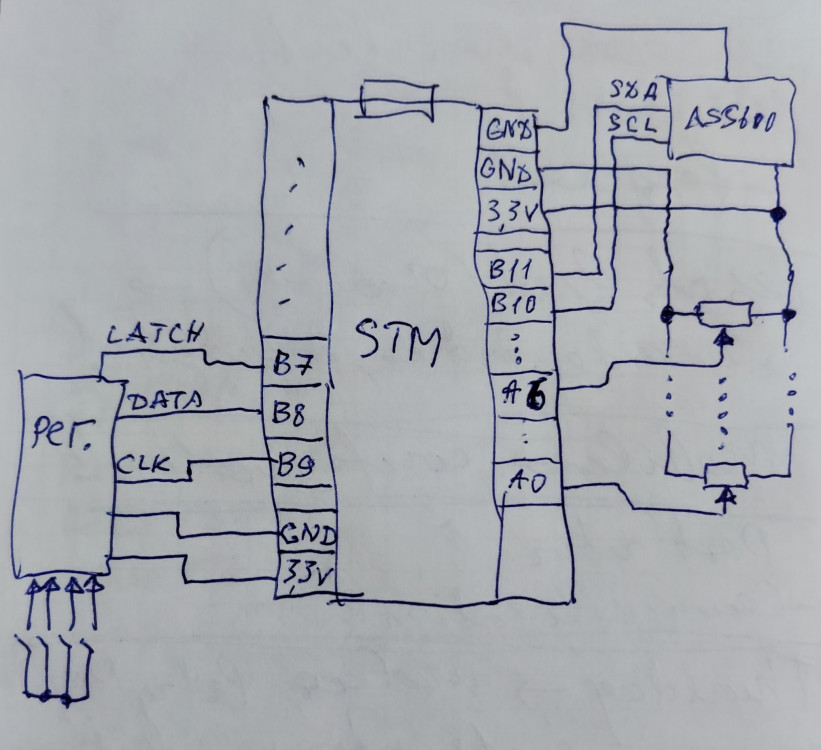 SDA
SCL
AS5600
GND
GND
3,3V
B11
B10
STM
LATCH
B7
A6
DATA
B8
Рег.
CLK
B9
A0
GND
3,3V